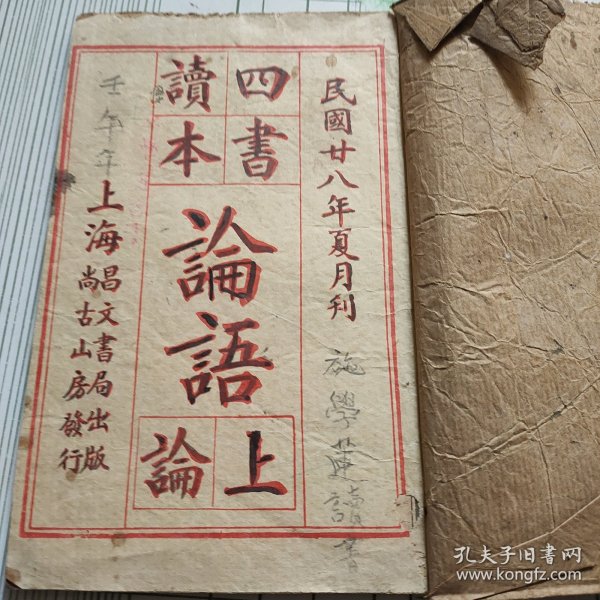 民國廿八年夏月刊
施學蓮讀書
四書
讀本
論語
上論
壬午年
上海昌文書局出版
尚古山房發行
孔夫子旧书网
www.kongfz.com